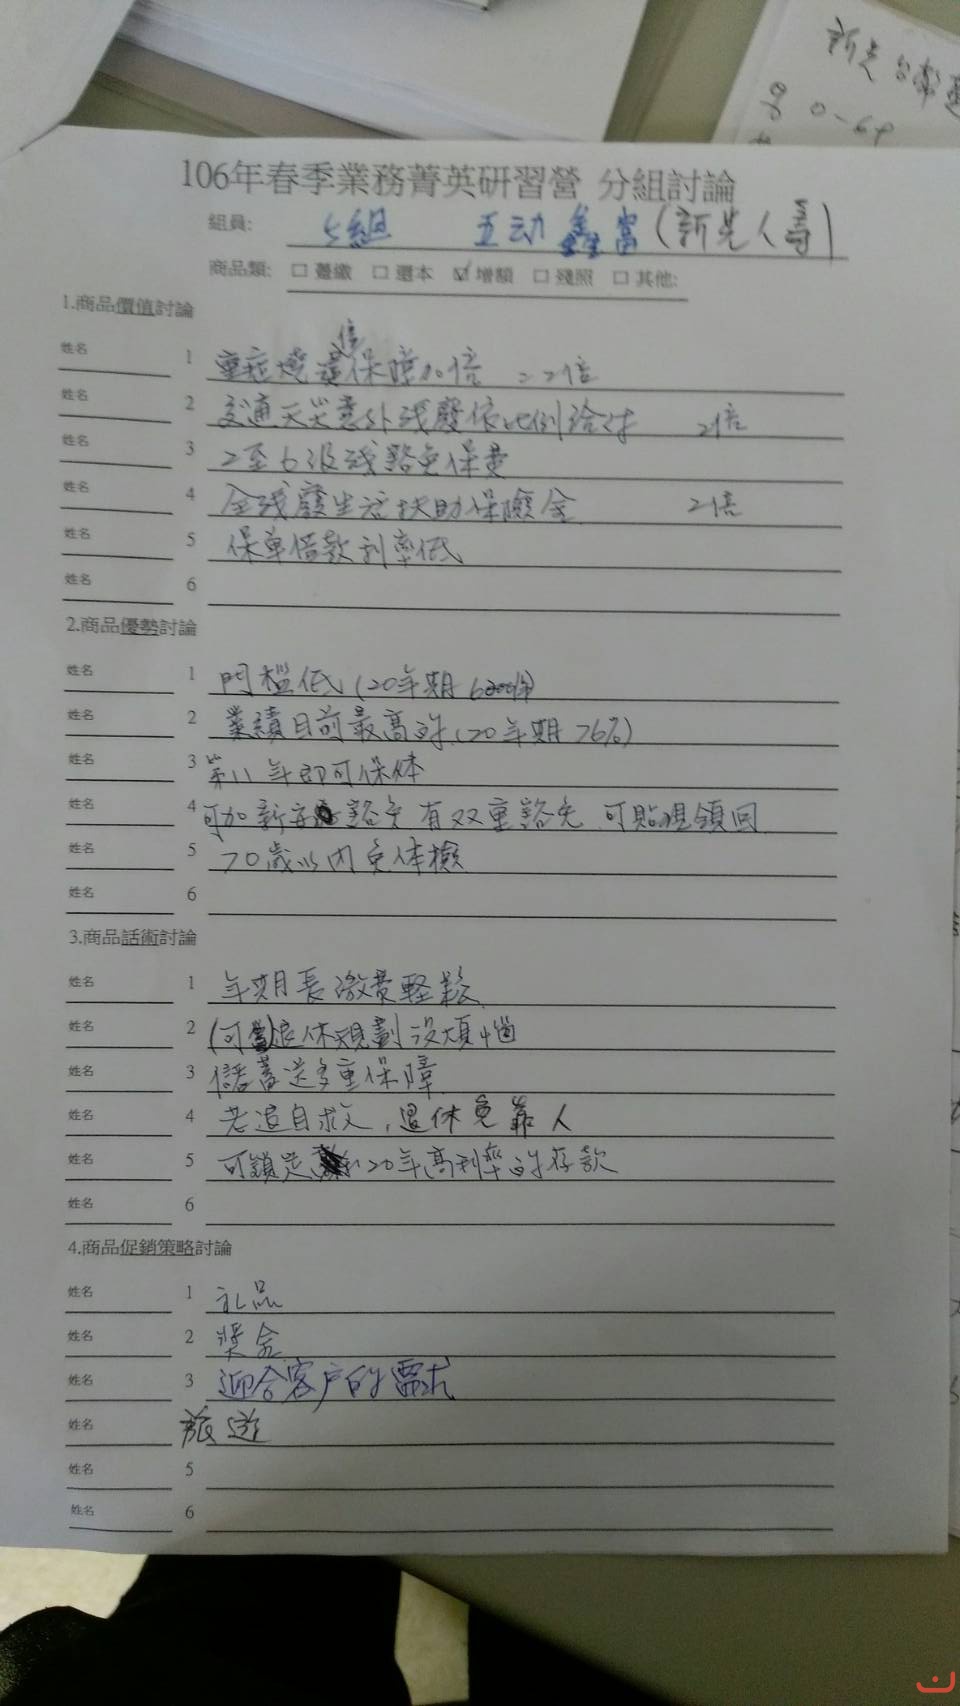 新光台幣
0-64
106年春季業務菁英研習營 分組討論
組員: 5組 互动鑫富(新光人壽)
商品類: □ 躉繳 □ 還本 ☑ 增額 □ 殘照 □ 其他:
1.商品價值討論
姓名 1 重症燒燙傷保障加倍 =2倍
姓名 2 交通天災意外残廢依比例給付 2倍
姓名 3 2至6級残豁免保費
姓名 4 全残廢生活扶助保險金 2倍
姓名 5 保單借款利率低
姓名 6
2.商品優勢討論
姓名 1 門檻低(20年期
姓名 2 業績目前最高的(20年期 76%)
姓名 3 第11年即可保本
姓名 4 可加新安 豁免 有双重豁免 可貼現領回
姓名 5 70歲以內免体檢
姓名 6
3.商品話術討論
姓名 1 年期長繳費輕鬆
姓名 2 (可當)退休規劃沒煩惱
姓名 3 儲蓄送多重保障
姓名 4 老道自求人,退休免靠人
姓名 5 可鎖定 20年高利率的存款
姓名 6
4.商品促銷策略討論
姓名 1 礼品
姓名 2 獎金
姓名 3 迎合客户的需求
姓名 旅遊
姓名 5
姓名 6